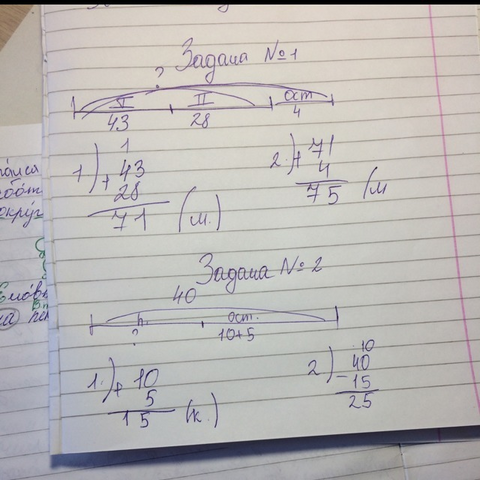 Задача №1
?
V II ост
43 28 4
1) + 43
28
71 (м.)
2) + 71
4
75 (м
Задача №2
40
п. ост.
? 10+5
1.) + 10
5
15 (к.)
2) 40
- 15
25
10